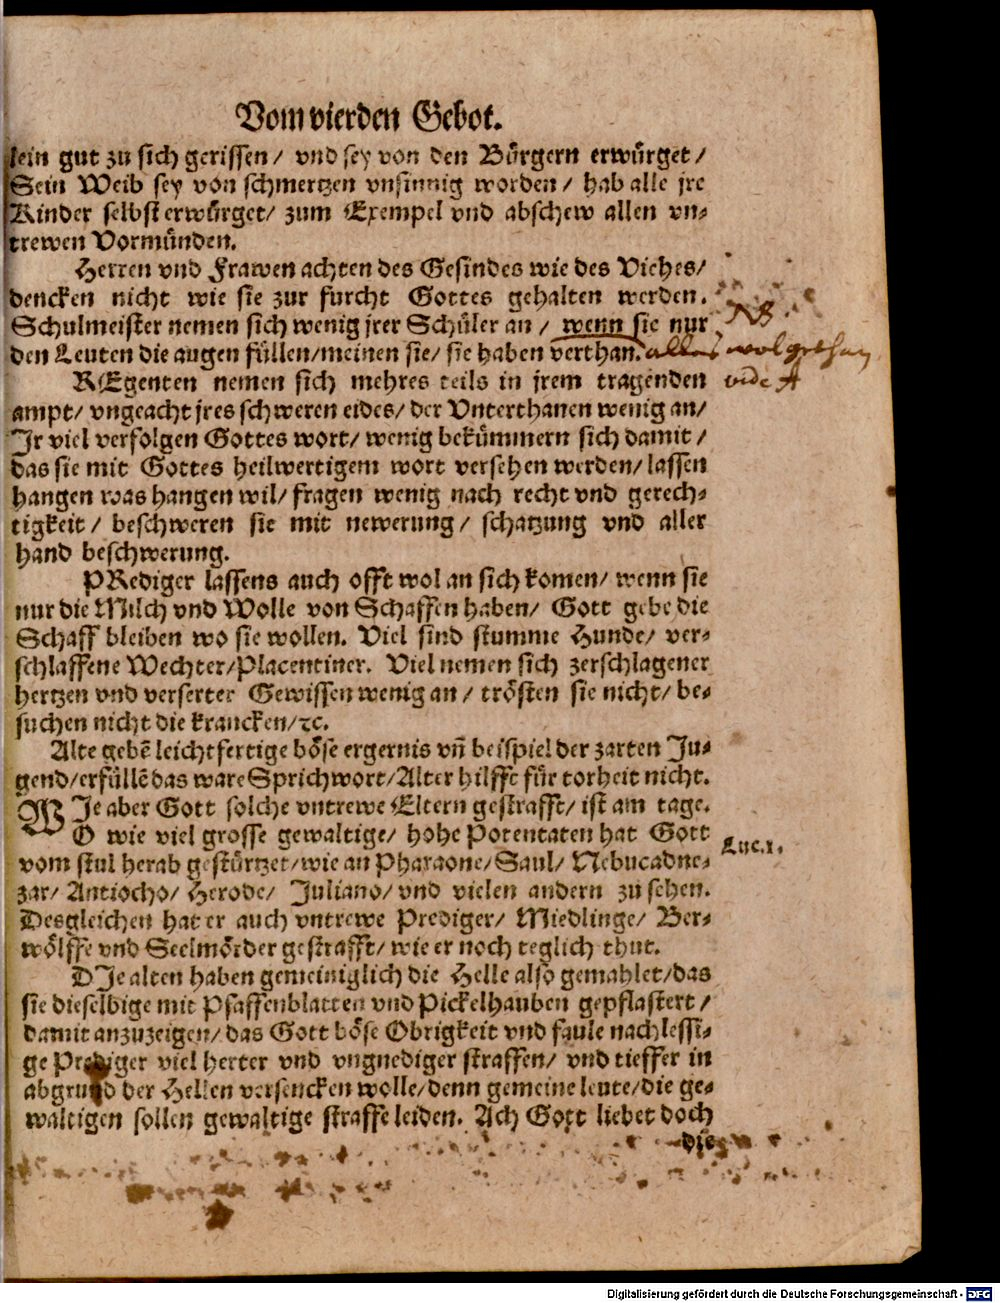 Vom vierden Gebot.
lein gut zu sich gerissen / vnd sey von den Bürgern erwürget /
Sein Weib sey von schmertzen vnsinnig worden / hab alle jre
Kinder selbst erwürget / zum Exempel vnd abschew allen vn-
trewen Vormünden.
Herren vnd Frawen achten des Gesindes wie des Viches /
dencken nicht wie sie zur furcht Gottes gehalten werden.
Schulmeister nemen sich wenig jrer Schüler an / wenn sie nur
NB
den Leuten die augen füllen / meinen sie / sie haben verthan. alles wol gethan
REgenten nemen sich mehres teils in jrem tragenden
vide A
ampt / vngeacht jres schweren eides / der Vnterthanen wenig an /
Jr viel verfolgen Gottes wort / wenig bekümmern sich damit /
das sie mit Gottes heilwertigem wort versehen werden / lassen
hangen was hangen wil / fragen wenig nach recht vnd gerech-
tigkeit / beschweren sie mit newerung / schatzung vnd aller
hand beschwerung.
PRediger lassens auch offt wol an sich komen / wenn sie
nur die Milch vnd Wolle von Schaffen haben / Gott gebe die
Schaff bleiben wo sie wollen. Viel sind stumme Hunde / ver-
schlaffene Wechter / Placentiner. Viel nemen sich zerschlagener
hertzen vnd verserter Gewissen wenig an / trösten sie nicht / be-
suchen nicht die krancken / ꝛc.
Alte gebē leichtfertige böse ergernis vñ beispiel der zarten Ju-
gend / erfüllē das ware Sprichwort / Alter hilfft für torheit nicht.
WJe aber Gott solche vntrewe Eltern gestrafft / ist am tage.
O wie viel grosse gewaltige / hohe Potentaten hat Gott
Luc. 1.
vom stul herab gestürtzet / wie an Pharaone / Saul / Nebucadne-
zar / Antiocho / Herode / Juliano / vnd vielen andern zu sehen.
Desgleichen hat er auch vntrewe Prediger / Miedlinge / Ber-
wölffe vnd Seelmörder gestrafft / wie er noch teglich thut.
DJe alten haben gemeiniglich die Helle also gemahlet / das
sie dieselbige mit Pfaffenblatten vnd Pickelhauben gepflastert /
damit anzuzeigen / das Gott böse Obrigkeit vnd faule nachlessi-
ge Prediger viel herter vnd vngnediger straffen / vnd tieffer in
abgrund der Hellen versencken wolle / denn gemeine leute / die ge-
waltigen sollen gewaltige straffe leiden. Ach Gott liebet doch
die
Digitalisierung gefördert durch die Deutsche Forschungsgemeinschaft - DFG